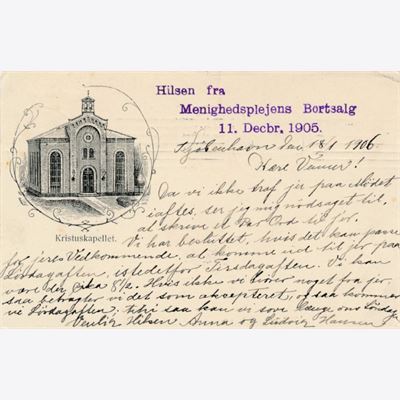 Hilsen fra
Menighedsplejens Bortsalg
11. Decbr. 1905.
Kjøbenhavn den 18/1 1906
Kære Venner!
Da vi ikke traf jer paa Mødet
iaftes, ser jeg mig nødsaget til
at skrive et Par Ord til jer.
Vi har besluttet, hvis det kan passe
Kristuskapellet.
for jeres Vedkommende, at komme ud til jer paa
Lørdagaften, istedetfor Tirsdagaften. Vi kan
være der cirka 8½. Hvis ikke vi hører noget fra jer,
saa betragter vi det som aksepteret, og saa kommer
vi Lørdagaften. saa kan vi sove længe om Søndagen
Venlig Hilsen Anna og Ludvig Hansen